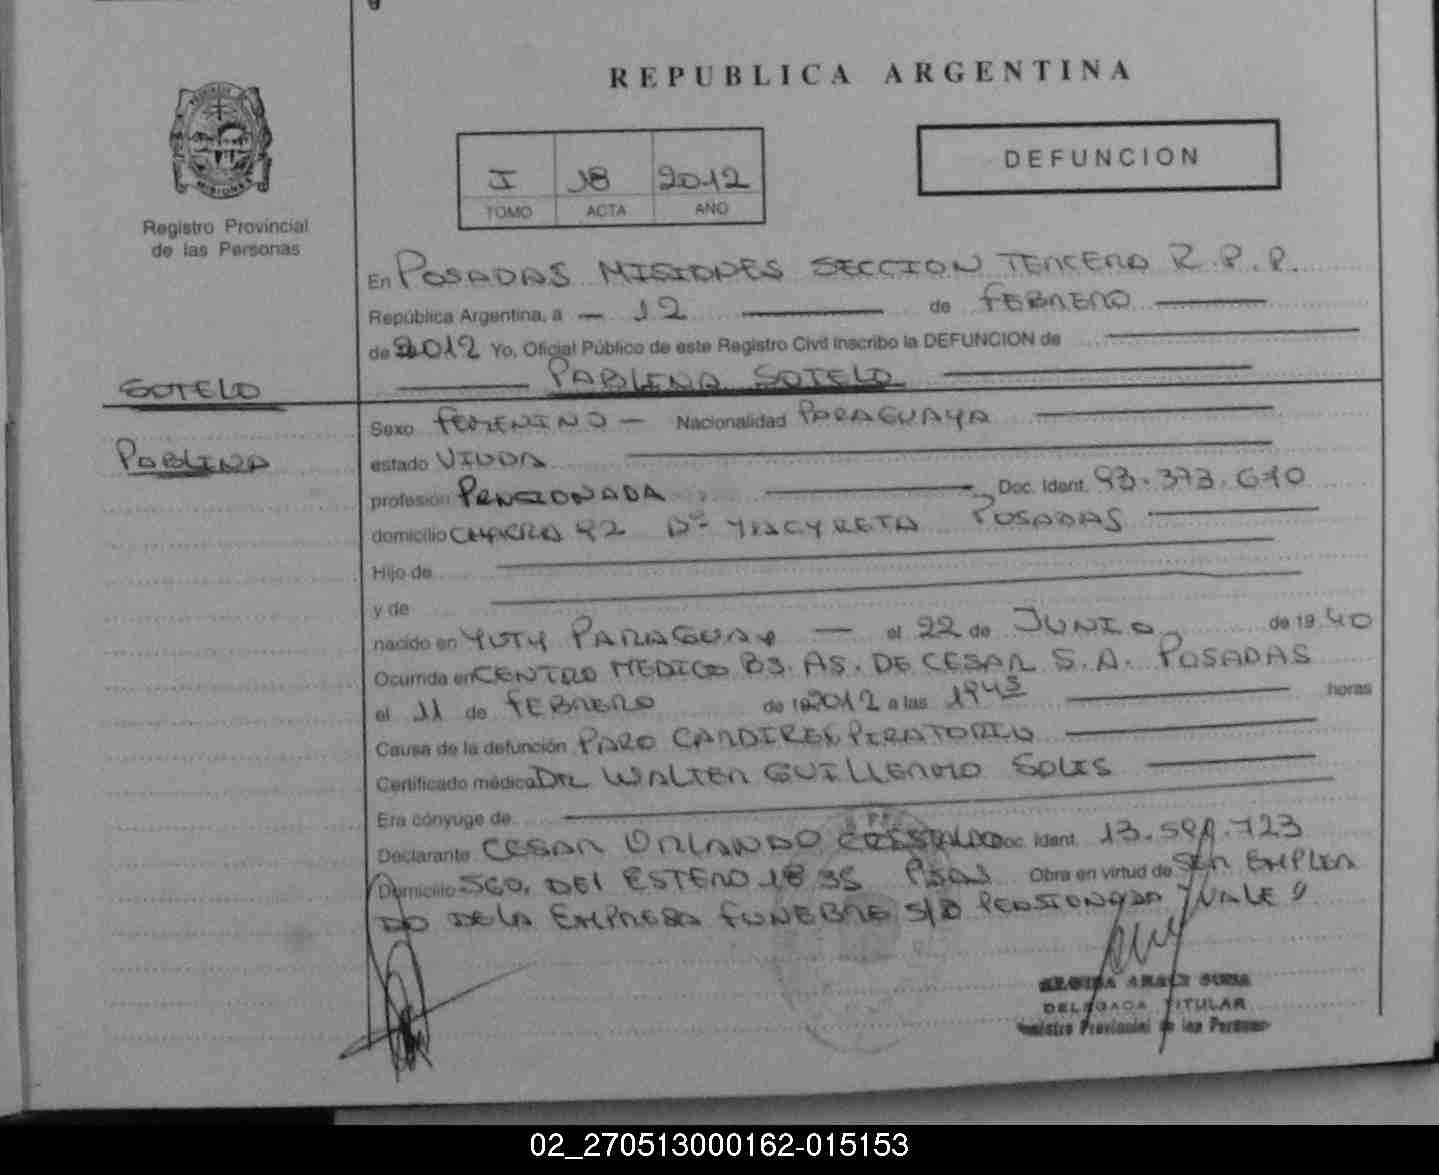 REPUBLICA ARGENTINA
Registro Provincial
de las Personas
MISIONES
I 18 2012
TOMO ACTA AÑO
DEFUNCION
En POSADAS MISIONES SECCION TERCERA R.P.P.
República Argentina, a 12 de FEBRERO
de 2012 Yo, Oficial Público de este Registro Civil inscribo la DEFUNCION de
PABLINA SOTELO
SOTELO
PABLINA
Sexo FEMENINO Nacionalidad PARAGUAYA
estado VIUDA
profesión PENSIONADA Doc. Ident. 93.373.610
domicilio CHACRA 92 Bº YACYRETA POSADAS
Hijo de
y de
nacido en YUTY PARAGUAY el 22 de JUNIO de 19 40
Ocurrida en CENTRO MEDICO BS. AS. DE CESAR S.A. POSADAS
el 11 de FEBRERO de 2012 a las 1945 horas
Causa de la defunción PARO CARDIRESPIRATORIO
Certificado médico DR WALTER GUILLERMO SOLIS
Era cónyuge de
Declarante CESAR ORLANDO Doc. Ident.
Domicilio SGO. DEL ESTERO 1835 PSAS Obra en virtud de SER EMPLEA
DO DE LA EMPRESA FUNEBRE S/B PENSIONADA VALE
DELEGADA TITULAR
Registro Provincial de las Personas
02_270513000162-015153